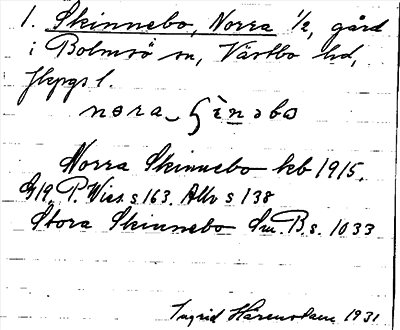 1. Skinnebo, Norra 1/2, gård
i Bolmsö sn, Västbo hd,
Jkpgs l.
Norra Skinnebo kb 1915.
P. Wies. s 163. Allv s 138
Stora Skinnebo Sm. B. s. 1033
Ingrid 1931